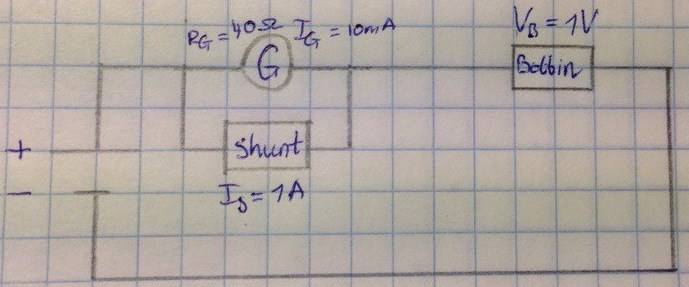 R_G = 40Ω I_G = 10mA
V_B = 1V
G
Bobbin
+
Shunt
−
I_S = 1A